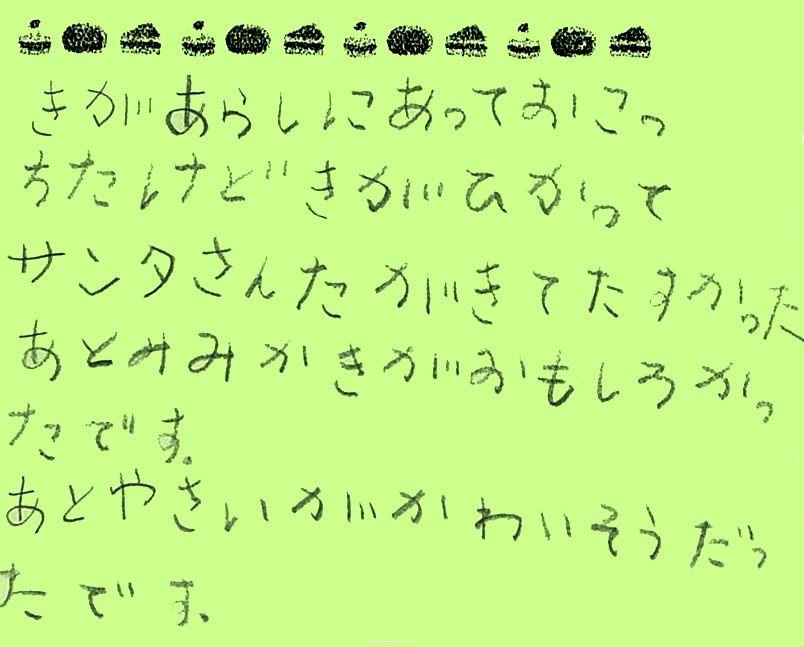 きがあらしにあっておこっ
ちたけどきがひかって
サンタさんたがきてたすかった
あとみみかきがおもしろかっ
たです。
あとやさいがかわいそうだっ
たです。